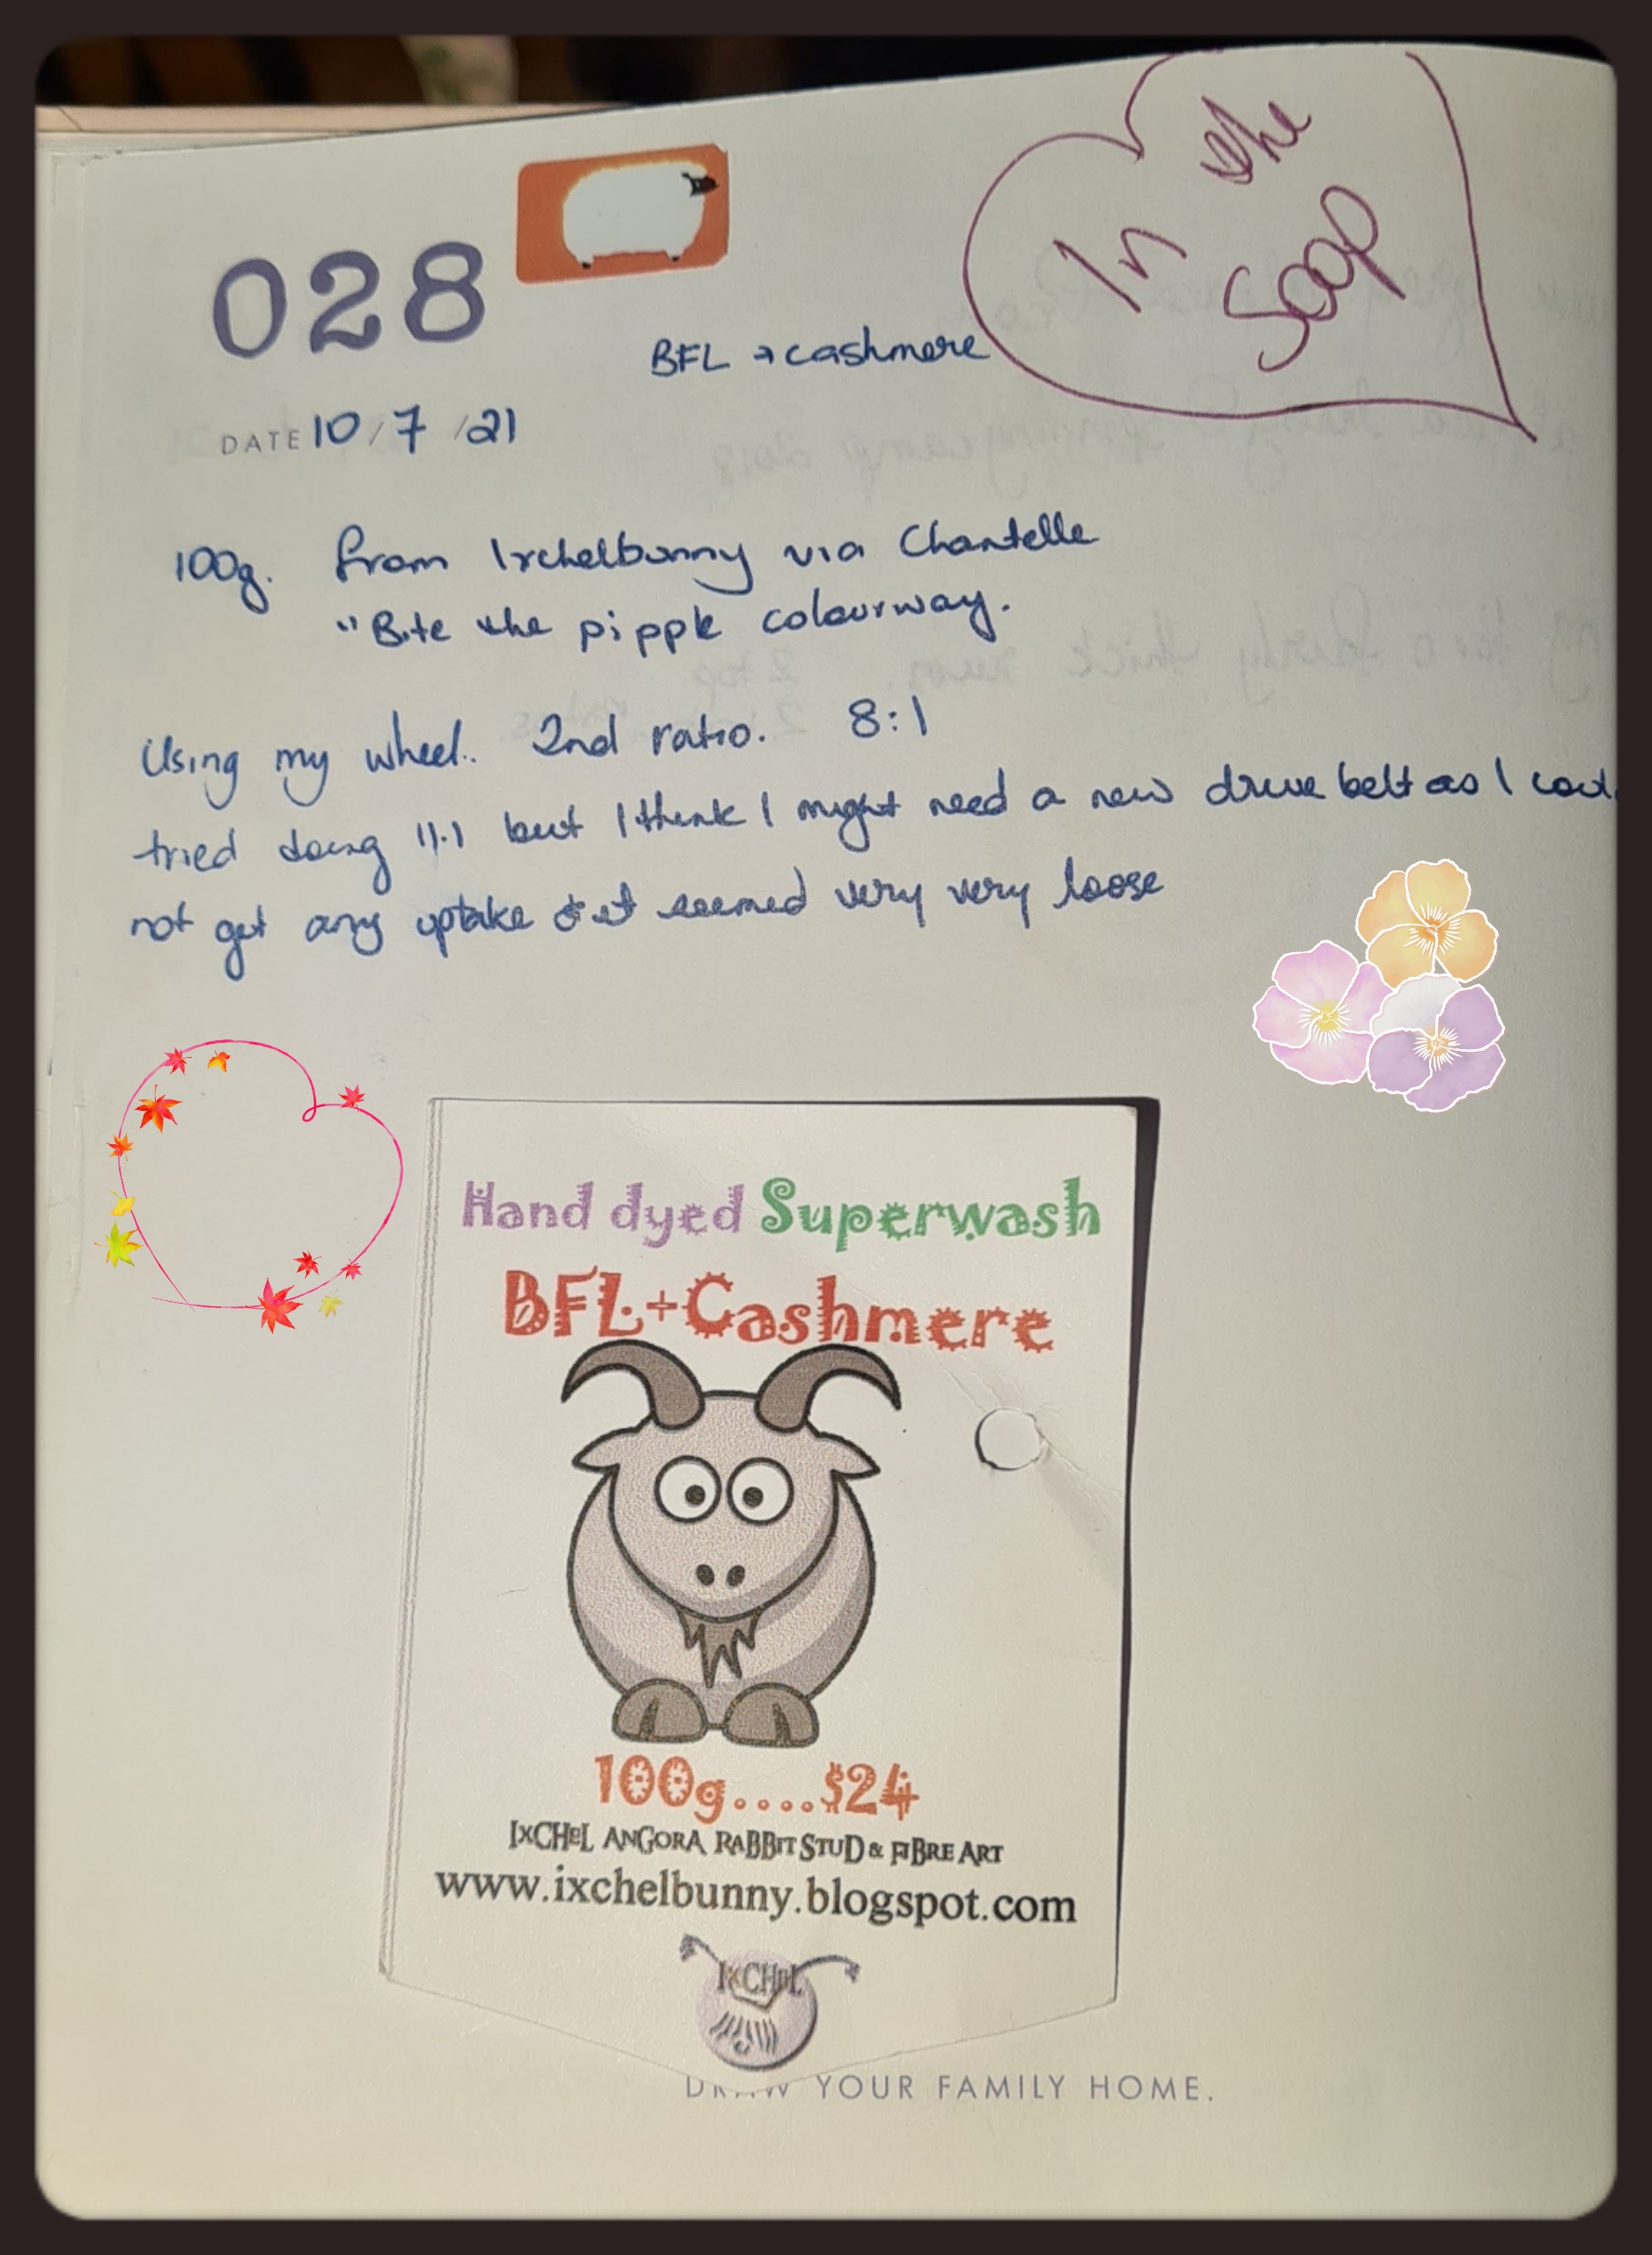 028
In the
Soap
BFL + cashmere
DATE 10/7/21
100g. From Ixchelbunny via Chantelle
"Bite the pipple colourway.
Using my wheel. 2nd ratio. 8:1
tried doing 11:1 but I think I might need a new drive belt as I coul
not get any uptake & it seemed very very loose
Hand dyed Superwash
BFL+Cashmere
100g....$24
IXCHEL ANGORA RABBIT STUD & FIBRE ART
www.ixchelbunny.blogspot.com
IXCHEL
DRAW YOUR FAMILY HOME.